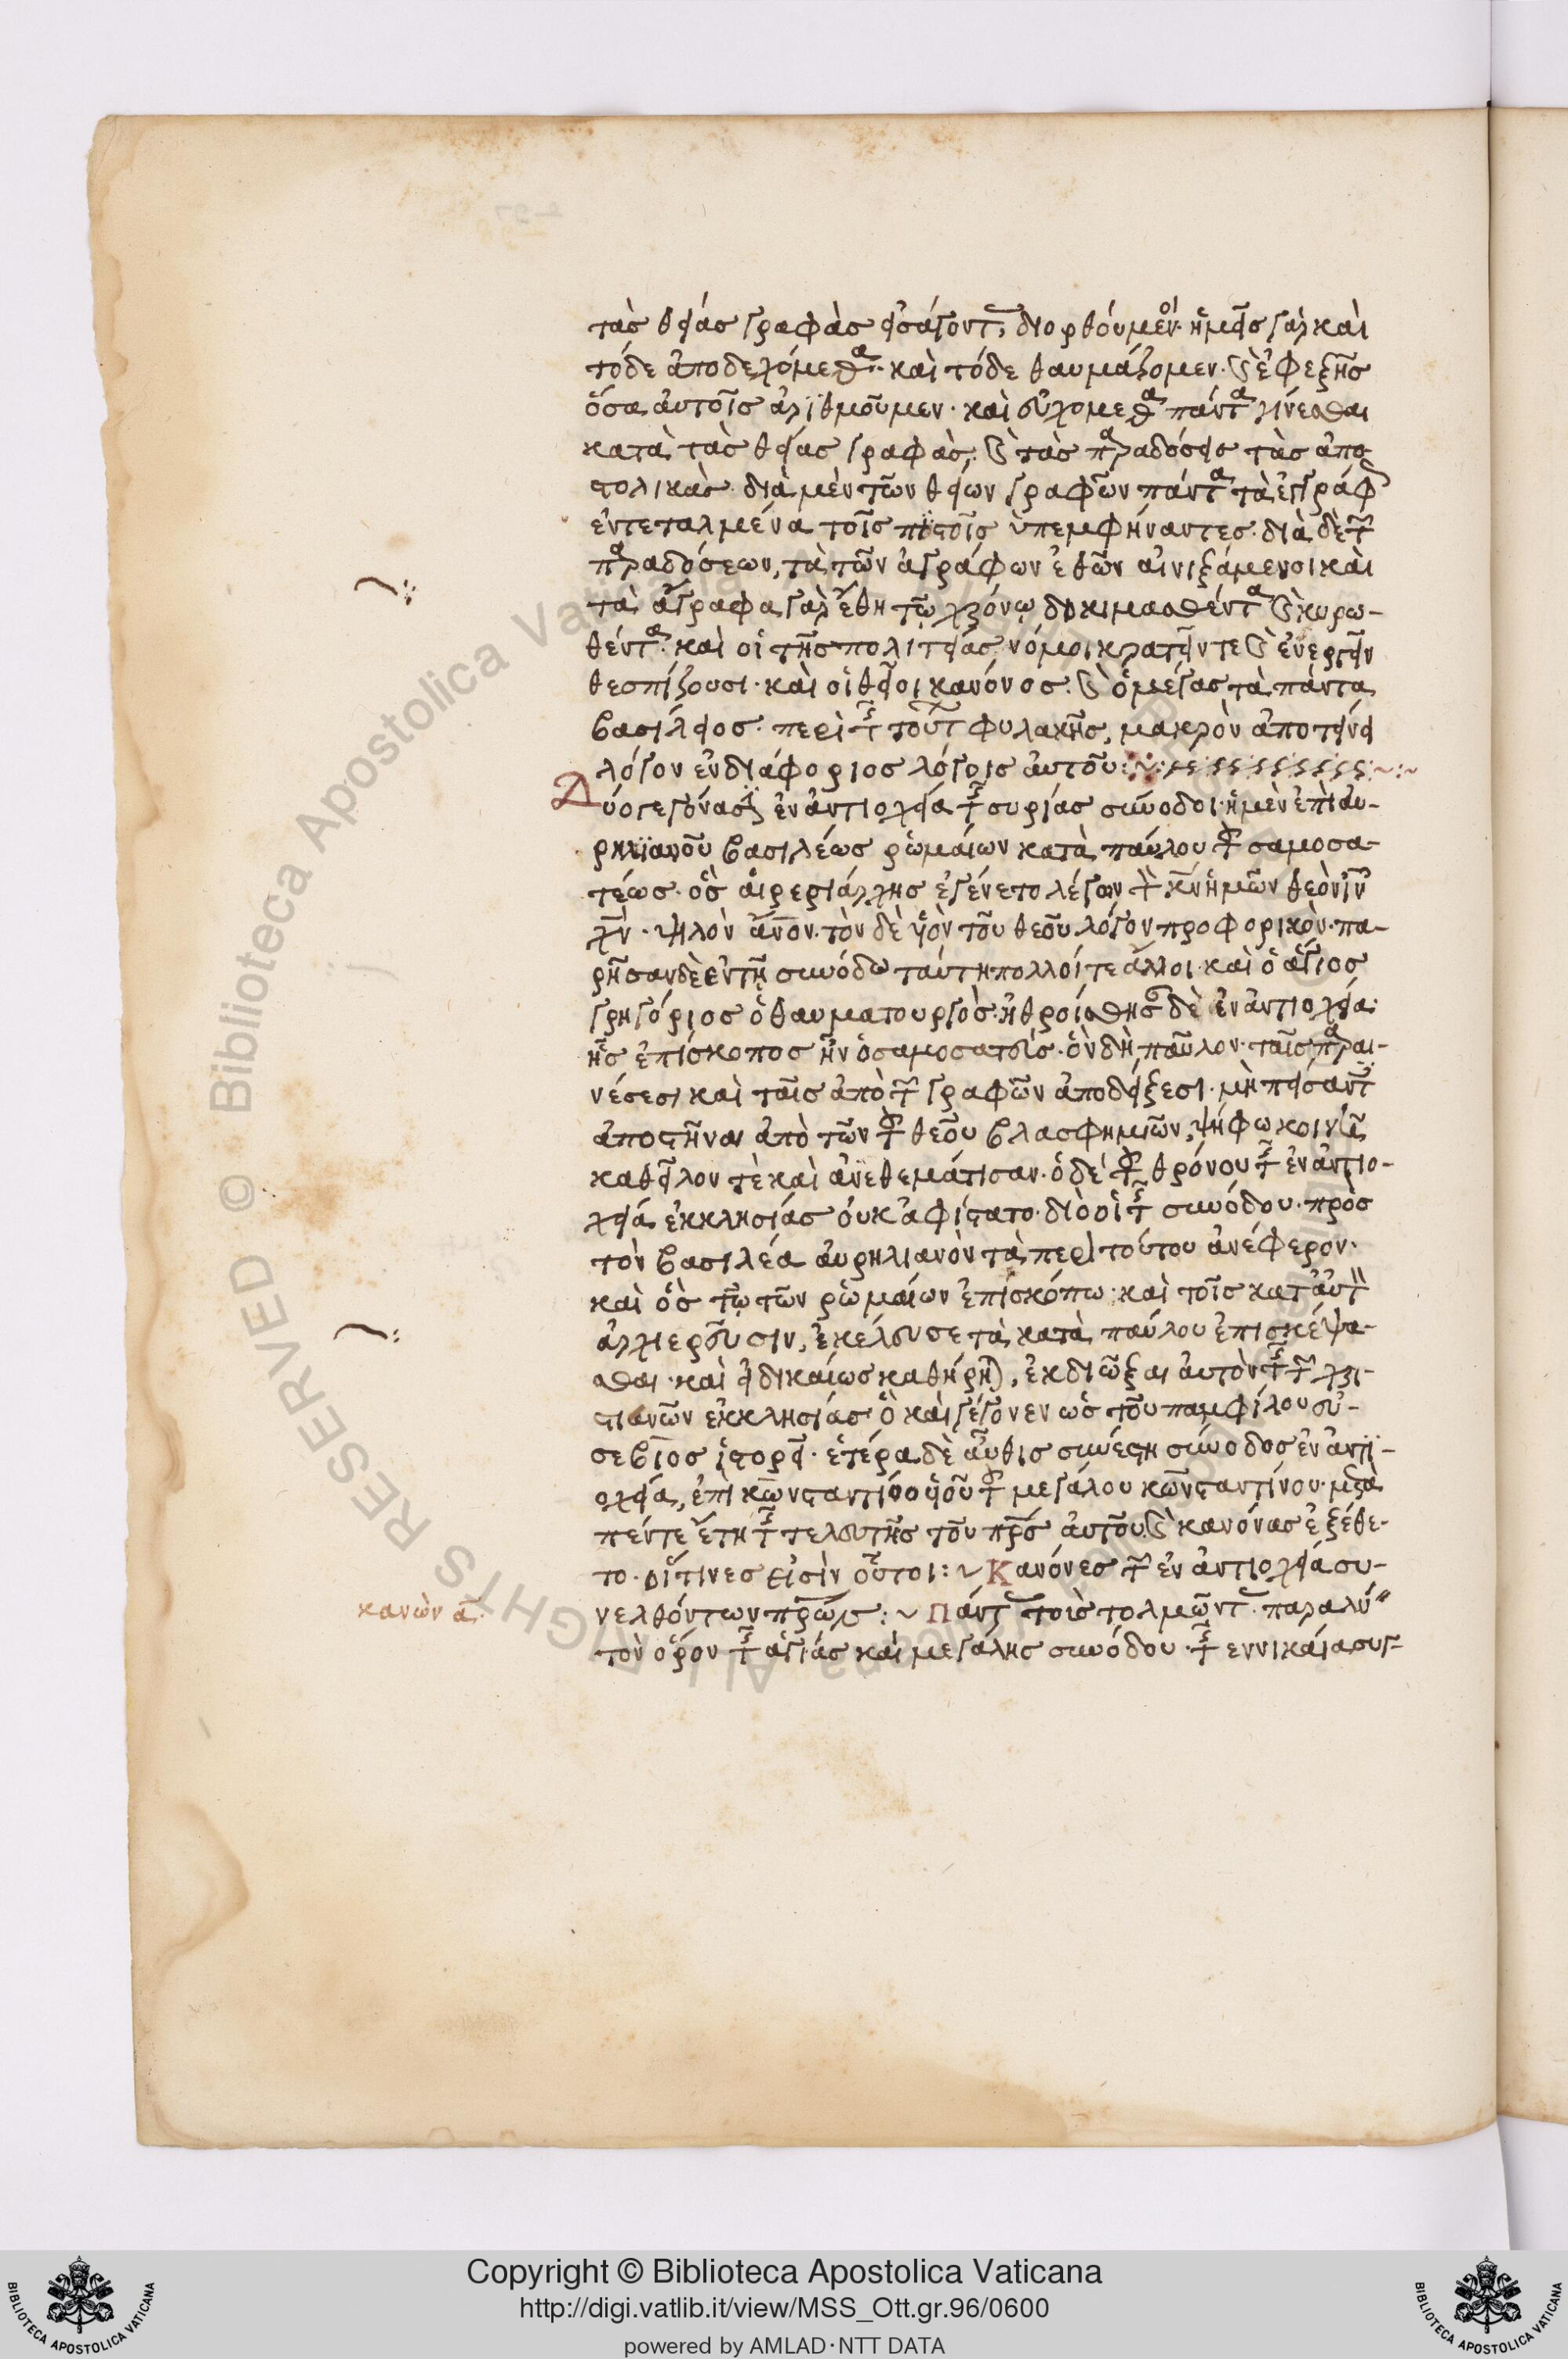 τὰς θείας γραφὰς εἰσάγοντ, διορθούμενοι. ἡμεῖς γὰρ καὶ
τόδε ἀποδεχόμεθα. καὶ τόδε θαυμάζομεν. καὶ ἐφεξῆς
ὅσα αὐτοῖς ἀριθμοῦμεν. καὶ εὐχόμεθα πάντα γίνεσθαι
κατὰ τὰς θείας γραφὰς, καὶ τὰς παραδόσεις τὰς ἀπο
στολικάς. διὰ μὲν τῶν θείων γραφῶν πάντα τὰ ἐγγράφ
ἐντεταλμένα τοῖς πιστοῖς ὑπεμφήναντες. διὰ δὲ τῶν
παραδόσεων, τὰ τῶν ἀγράφων ἐθῶν αἰνιξάμενοι καὶ
τὰ ἄγραφα γὰρ ἔθη τῷ χρόνῳ δοκιμασθέντα καὶ κυρω-
θέντα. καὶ οἱ τῆς πολιτείας νόμοι κρατεῖν τε καὶ ἐνεργεῖν
θεσπίζουσι. καὶ οἱ θεῖοι κανόνες. καὶ ὁ μέγας τὰ πάντα
βασίλειος. περὶ τῆς τούτ φυλακῆς, μακρὸν ἀποτείνει
λόγον ἐν διαφόροις λόγοις αὐτοῦ:
Δύο γεγόνασιν ἐν ἀντιοχεία τῆς συρίας σύνοδοι. ἡ μὲν ἐπὶ αὐ-
ρηλιανοῦ βασιλέως ῥωμαίων κατὰ παύλου τοῦ σαμοσα-
τέως. ὃς αἱρεσιάρχης ἐγένετο λέγων τὸν κν ἡμῶν θεὸν ιν
χν. ψιλὸν ανον. τὸν δὲ υἱὸν τοῦ θεοῦ λόγον προφορικόν. πα-
ρῆσαν δὲ ἐν τῇ συνόδω ταύτη πολλοί τε ἄλλοι. καὶ ὁ ἅγιος
γρηγόριος ὁ θαυματουργός. ἠθροίσθησαν δὲ ἐν ἀντιοχεία.
ἧς ἐπίσκοπος ἦν ὁ σαμοσατεύς. ὃν δὴ παῦλον. ταῖς παραι-
νέσεσι καὶ ταῖς ἀπὸ τῶν γραφῶν ἀποδείξεσι. μὴ πείσαντες
ἀποστῆναι ἀπὸ τῶν τοῦ θεοῦ βλασφημιῶν, ψήφω κοινῇ
καθεῖλόν τε καὶ ἀνεθεμάτισαν. ὁ δὲ τοῦ θρόνου τῆς ἐν ἀντιο-
χεία ἐκκλησίας οὐκ ἀφίστατο. διὸ οἱ τῆς συνόδου. πρὸς
τὸν βασιλέα αὐρηλιανὸν τὰ περὶ τούτου ἀνέφερον.
καὶ ὃς τῷ τῶν ῥωμαίων ἐπισκόπω. καὶ τοῖς κατ αὐτὴν
ἀρχιερεῦσιν, ἐκέλευσε τὰ κατὰ παύλου ἐπισκέψα-
σθαι. καὶ εἰ δικαίως καθήρηται, ἐκδιῶξαι αὐτὸν τῆς τῶν χρι-
στιανῶν ἐκκλησίας ὃ καὶ γέγονεν ὡς τοῦ παμφίλου εὐ-
σέβιος ἱστορεῖ. ἑτέρα δὲ αὖθις συνέστη σύνοδος ἐν ἀντι-
οχεία, ἐπὶ κωνσταντίου υἱοῦ τοῦ μεγάλου κωνσταντίνου. μετὰ
πέντε ἔτη τῆς τελευτῆς τοῦ πρς αὐτοῦ. καὶ κανόνας ἐξέθε-
το. οἵτινες εἰσὶν οὗτοι: ~ Κανόνες τῶν ἐν ἀντιοχεία συ-
κανὼν α
νελθόντων πρων: ~ Πάντας τοὺς τολμῶντας παραλύειν
τὸν ὅρον τῆς ἁγίας καὶ μεγάλης συνόδου. τῆς ἐν νικαία συγ-
Copyright © Biblioteca Apostolica Vaticana
http://digi.vatlib.it/view/MSS_Ott.gr.96/0600
powered by AMLAD·NTT DATA
BIBLIOTECA APOSTOLICA VATICANA
BIBLIOTECA APOSTOLICA VATICANA